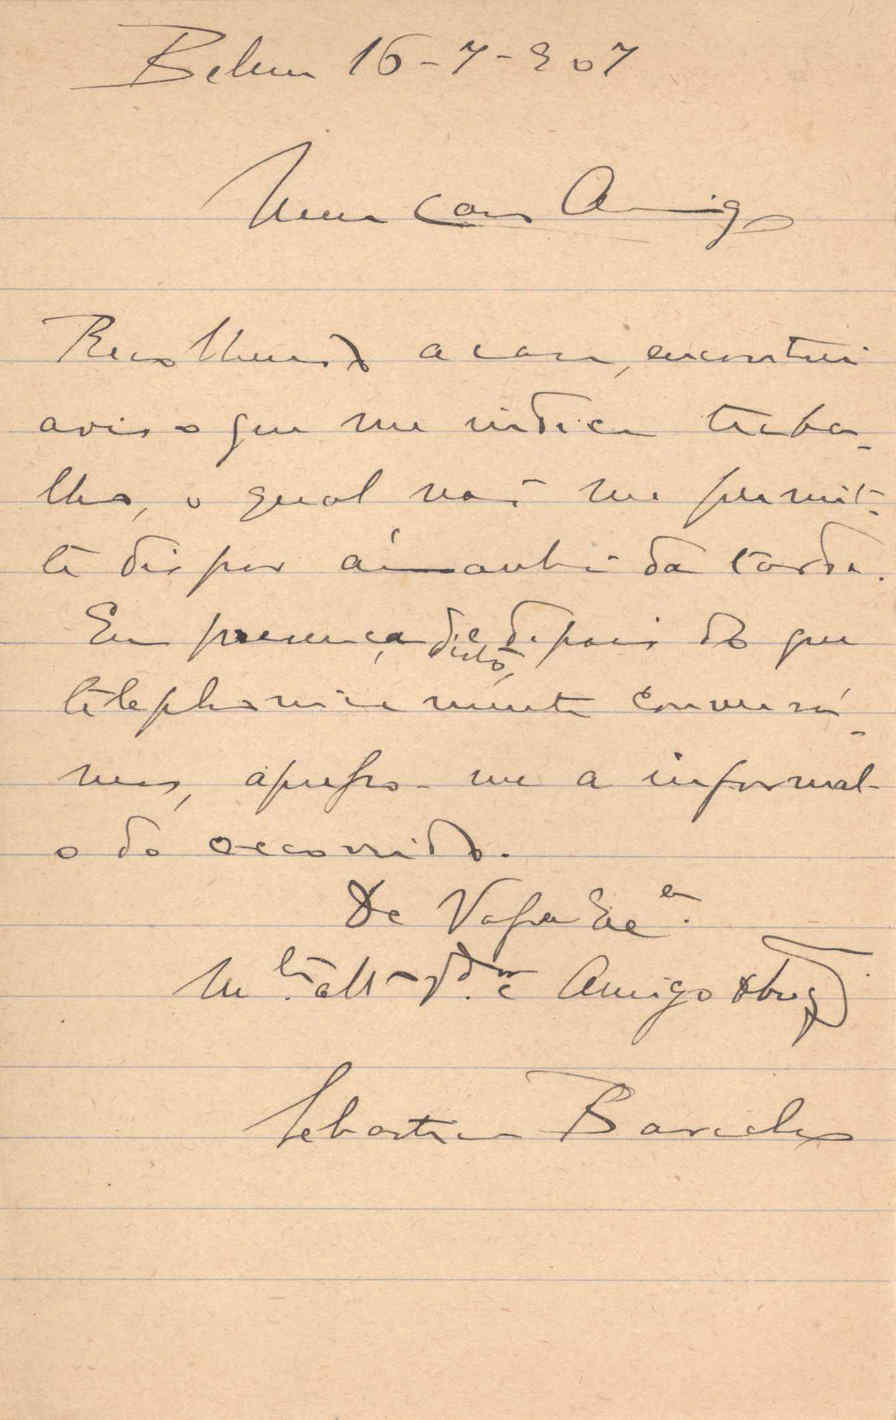 Belem 16-7-907
Meu caro Amigo
Recolhendo a casa, encontrei
aviso que me indica traba-
lho, o qual não me permit-
te dispor ámanhã da tarde.
Em presença disto, e depois do que
telephonicamente conversá-
mos, apresso-me a informal-
o do occorrido.
De Vossa Exª.
Mto. attº Vdor. e Amigo obrigº
Sebastião